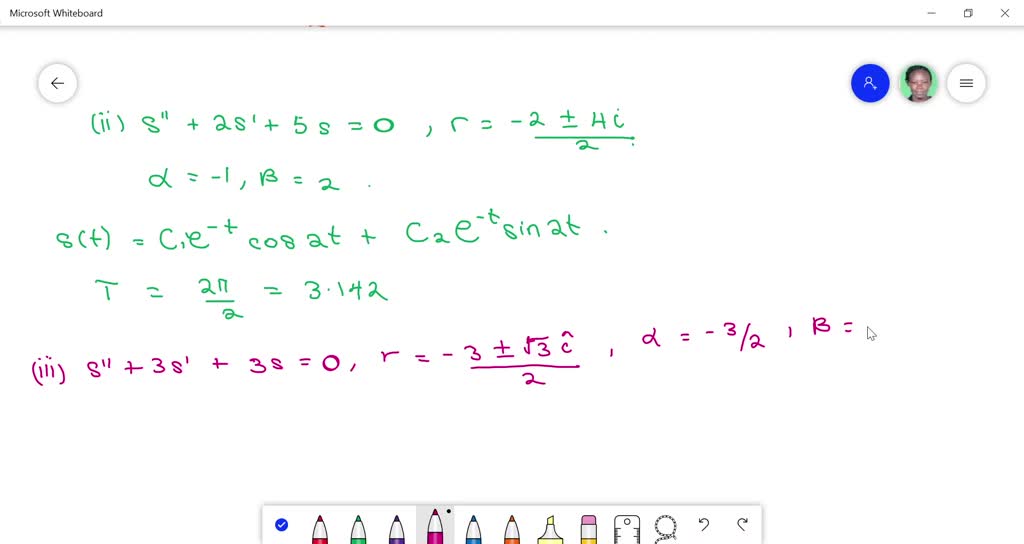 Microsoft Whiteboard
(ii) s'' + 2s' + 5s = 0 , r = -2 ± 4i / 2
α = -1, β = 2 .
s(t) = C₁e^{-t} cos 2t + C₂e^{-t} sin 2t .
T = 2π/2 = 3.142
(iii) s'' + 3s' + 3s = 0, r = -3 ± √3 i / 2 , α = -3/2 , β =